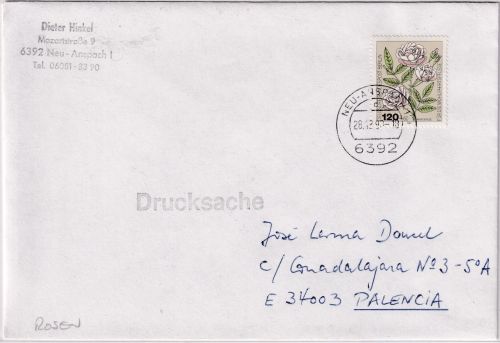 Dieter Hinkel
Mozartstraße 9
6392 Neu-Anspach 1
Tel. 06081-8390
120
NEU-ANSPACH 1
6392
Drucksache
José Lerma
C/ Guadalajara Nº 3-5º A
E 34003 PALENCIA
ROSEN